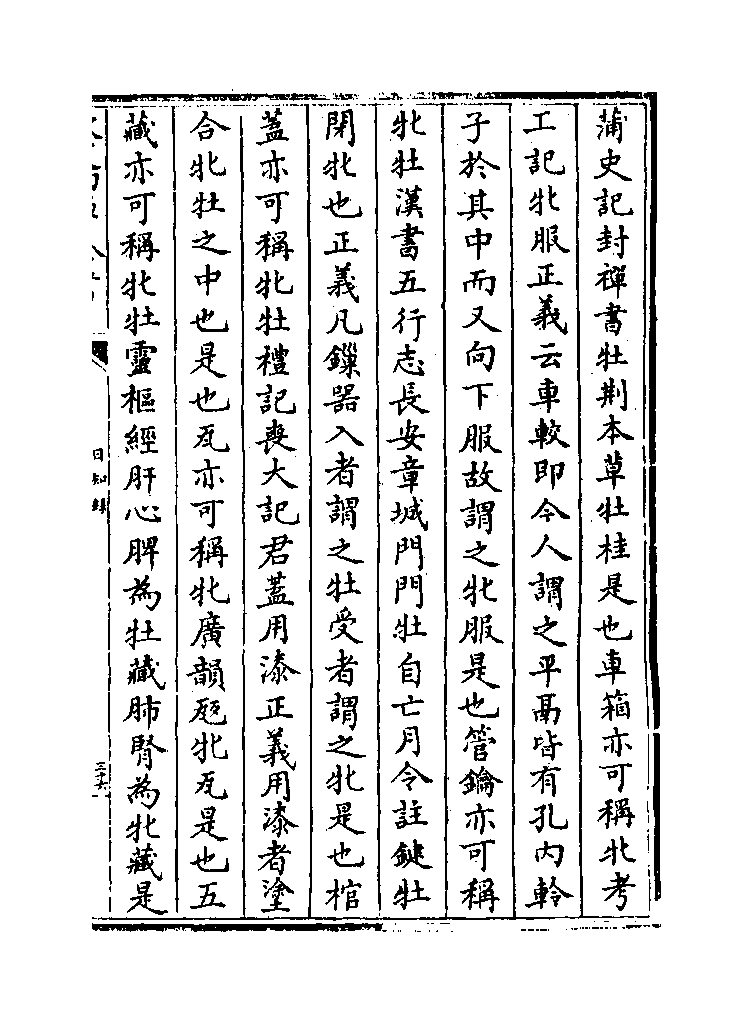 蒲史記封禪書牡荆本草牡桂是也車箱亦可稱牝考
工記牝服正義云車較即今人謂之平鬲皆有孔内軨
子於其中而又向下服故謂之牝服是也管鑰亦可稱
牝牡漢書五行志長安章城門門牡自亡月令註鍵牡
閉牝也正義凡鏁器入者謂之牡受者謂之牝是也棺
蓋亦可稱牝牡禮記喪大記君蓋用漆正義用漆者塗
合牝牡之中也是也瓦亦可稱牝廣韻㼝牝瓦是也五
藏亦可稱牝牡靈樞經肝心脾為牡藏肺腎為牝藏是
日知録
三十二